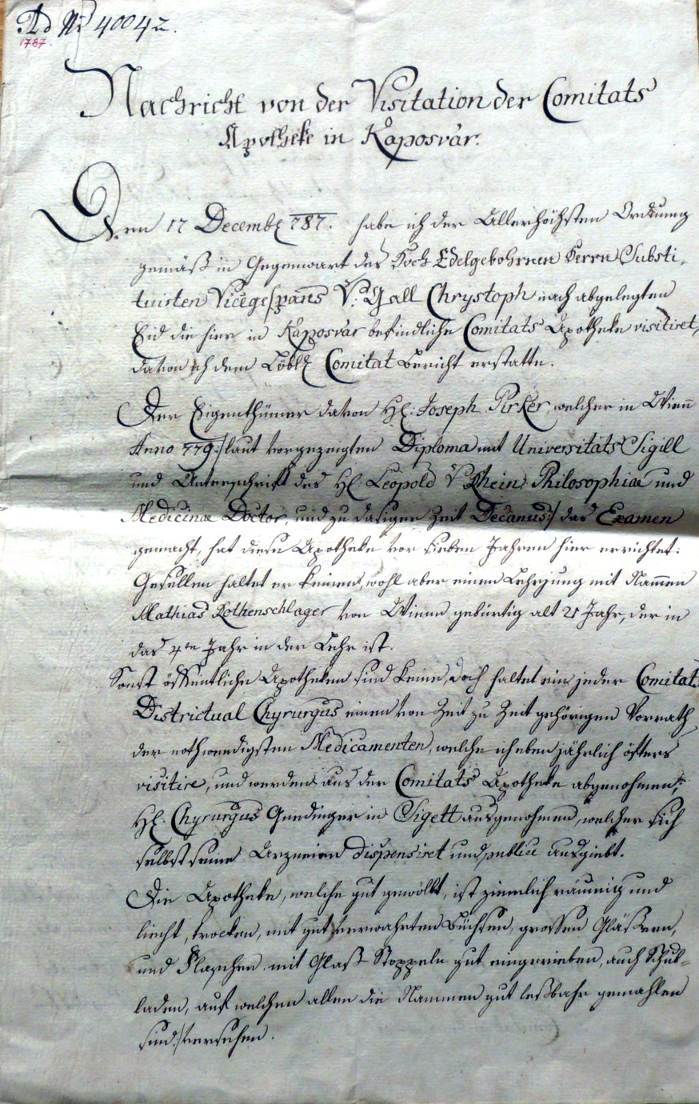 Ad Nr 40042.
1787.
Nachricht von der Visitation der Comitats
Apotheke in Kaposvár.
Den 17 Decembr 787. habe ich der Allerhöchsten Ordnung
gemäß in Gegenwart des Hoch Edelgebohrnen Herrn Substi-
tuirten Vicegespans V. Gall Chrystoph nach abgelegten
Eid die hier in Kaposvar befindliche Comitats Apotheke visitiret,
davon ich dem Löbl Comitat Bericht erstatte.
Der Eigenthümer davon H: Joseph Pirker, welcher in Wien
Anno 779 /: laut vorgezeigten Diploma mit Universitäts Sigill
und Unterschrift des H: Leopold V. Rhein Philosophiæ und
Medicinæ Doctor, und zu dasiger Zeit Decanus :/ das Examen
gemacht, hat diese Apotheke vor sieben Jahren hier errichtet.
Gesellen haltet er keinen, wohl aber einen Lehrjung mit Nammen
Mathias Rothenschlager von Wienn gebürtig alt 21 Jahr, der in
das 4te Jahr in der Lehr ist.
Sonst öffentliche Apotheken sind keine, doch haltet ein jeder Comitats
Districtual Chyrurgus einen von Zeit zu Zeit gehörigen Vorrath
der nothwendigsten Medicamenten, welche ich eben jährlich öfters
visitire, und werden aus der Comitats Apotheke abgenohmen,
H: Chyrurgus in Sigett ausgenohmen, welcher sich
selbst seine Arzneien dispensiret und publice ausgiebt.
Die Apotheke, welche gut gewölbt, ist ziemlich räumig und
liecht, trocken, mit gut verwahrten Büchsen, grossen Gläsern,
und Flaschen mit Glaß Stoppeln gut eingerieben, auch Schub-
laden, auf welchen allen die Nammen gut leßbahr gemahlen
sind, versehen.